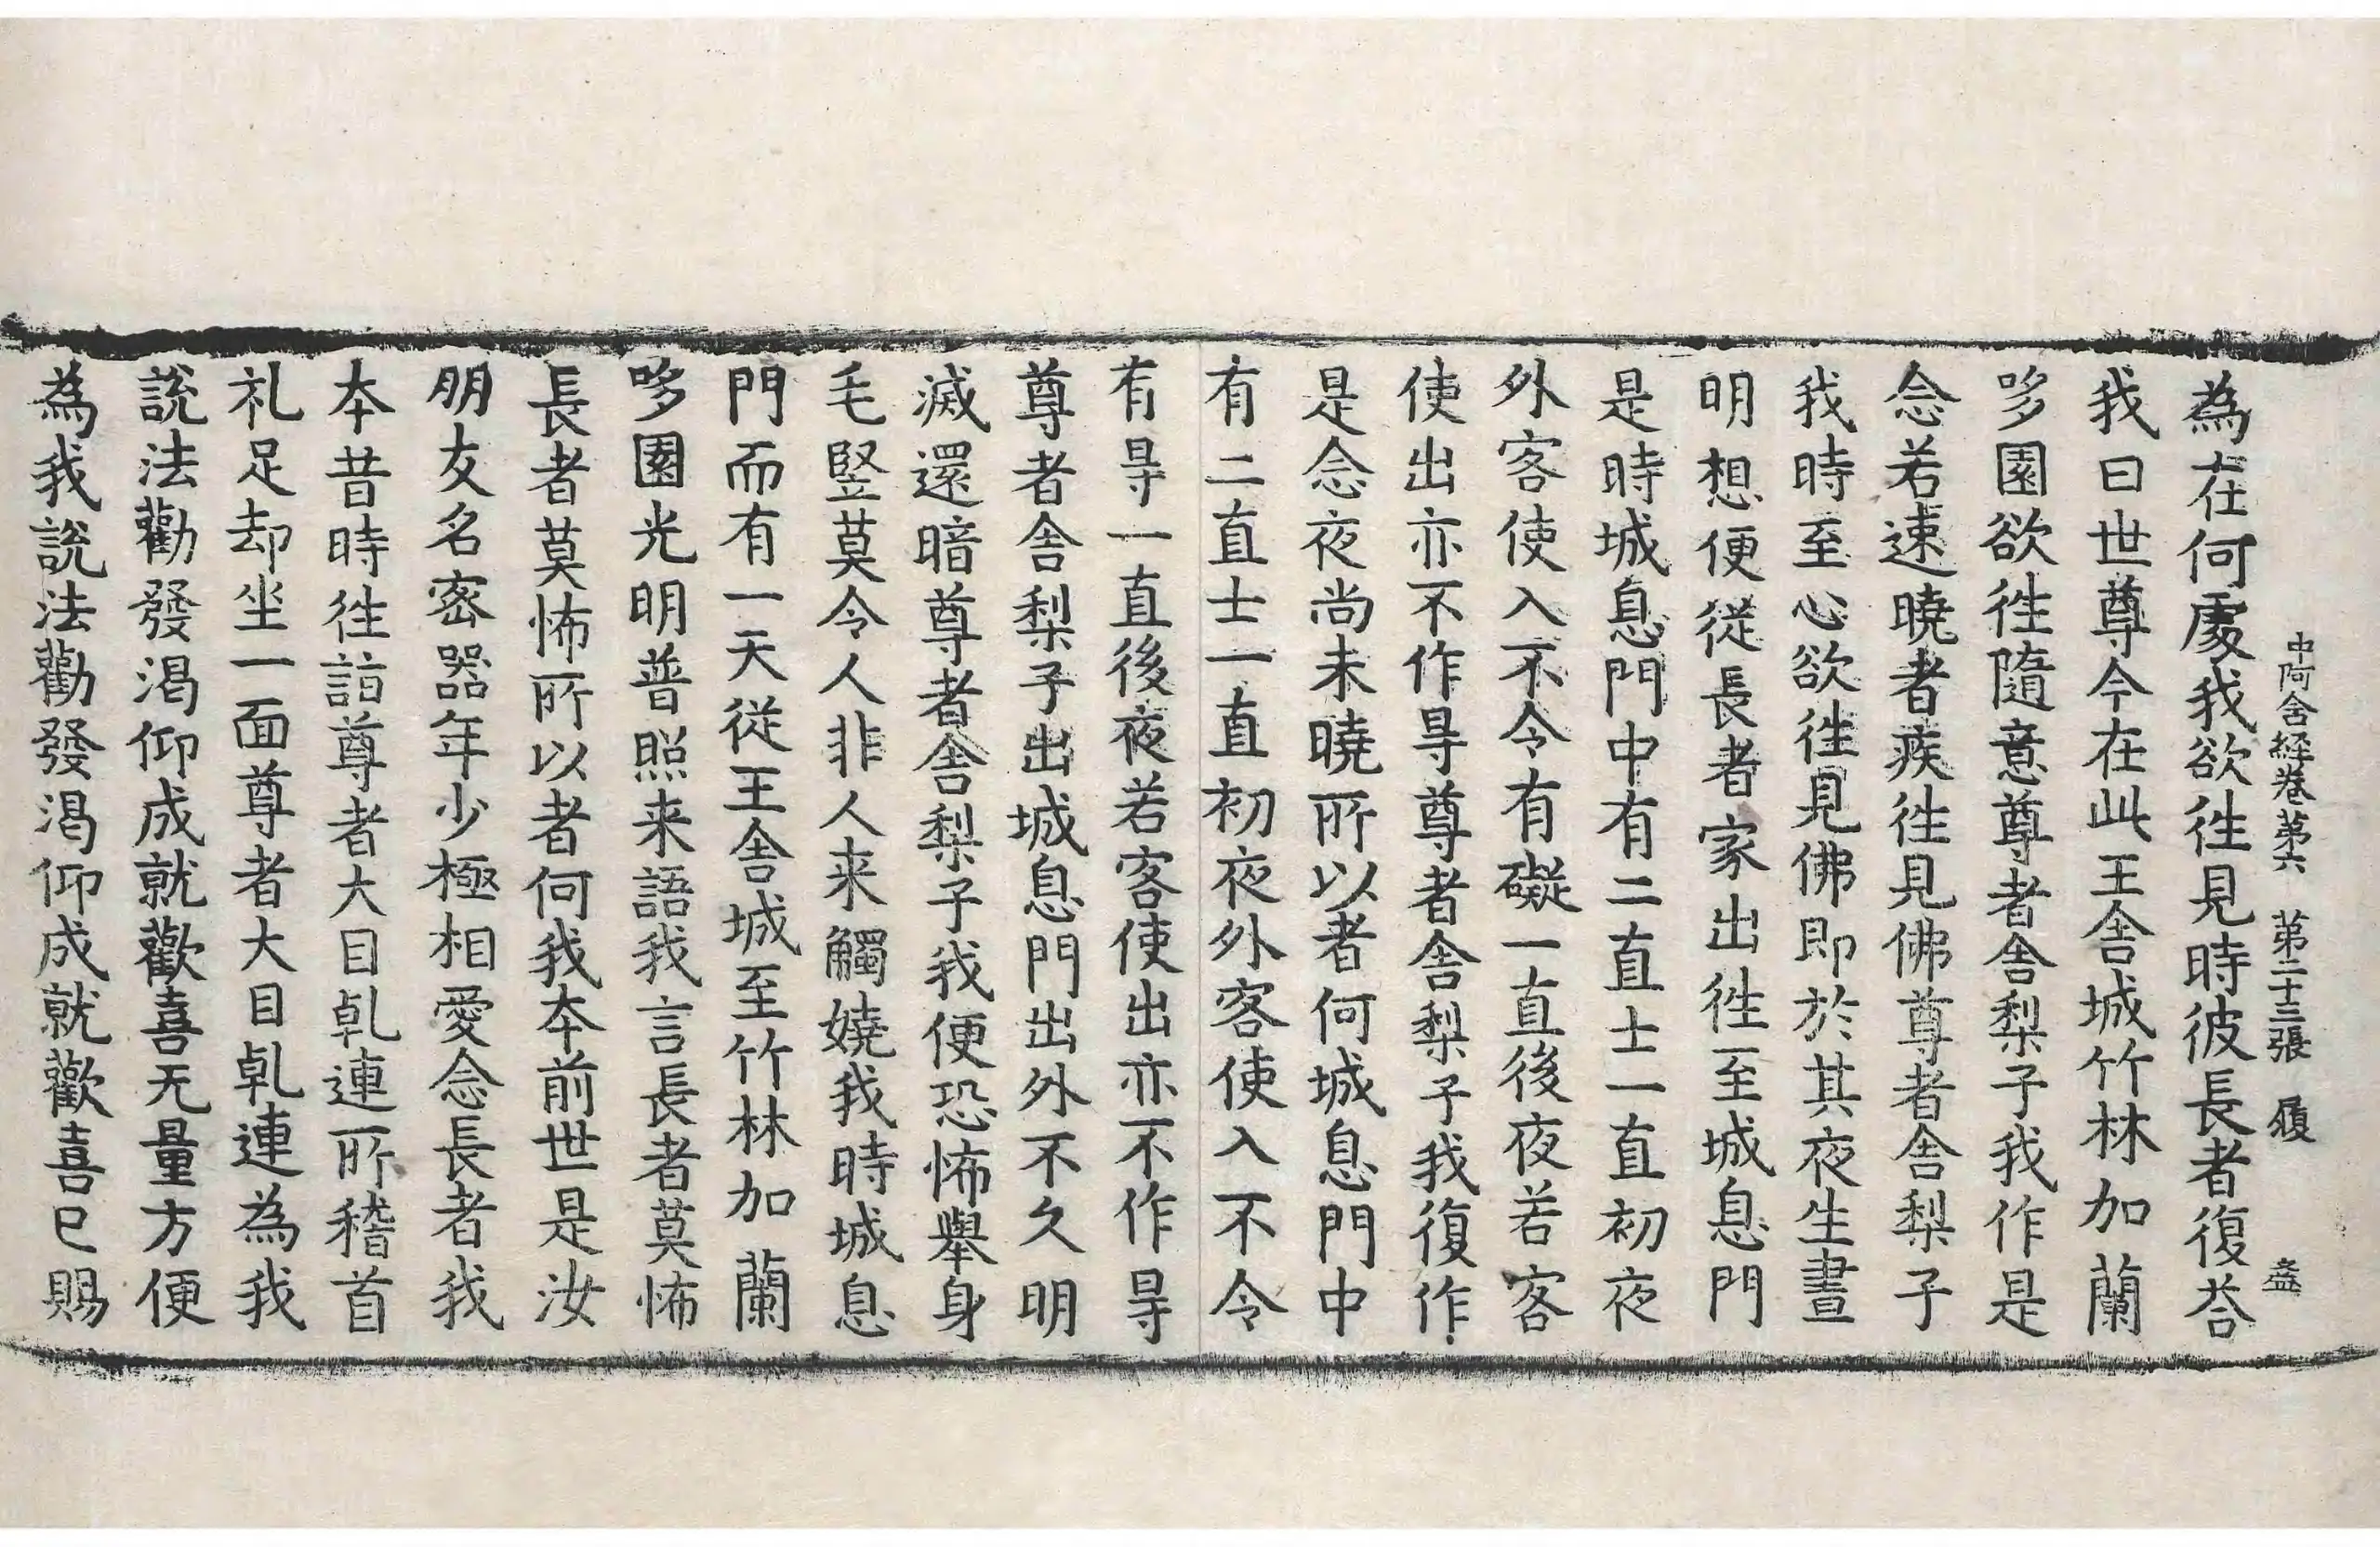 中阿舍經卷第六 第二十三張 履 盏
為在何處我欲徃見時彼長者復荅
我曰世尊今在此王舎城竹林加蘭
哆園欲徃隨意尊者舎梨子我作是
念若速曉者疾徃見佛尊者舎梨子
我時至心欲徃見佛即於其夜生晝
明想便從長者家出徃至城息門
是時城息門中有二直士一直初夜
外客使入不令有礙一直後夜若客
使出亦不作㝵尊者舎梨子我復作
是念夜尚未曉所以者何城息門中
有二直士一直初夜外客使入不令
有㝵一直後夜若客使出亦不作㝵
尊者舎梨子出城息門出外不久明
滅還暗尊者舎梨子我便恐怖舉身
毛竪莫令人非人来觸嬈我時城息
門而有一天從王舎城至竹林加蘭
哆園光明普照来語我言長者莫怖
長者莫怖所以者何我夲前世是汝
朋友名密器年少極相愛念長者我
夲昔時徃詣尊者大目乹連所稽首
礼足却坐一面尊者大目乹連為我
說法勸發渴仰成就歡喜无量方便
為我說法勸發渴仰成就歡喜已賜